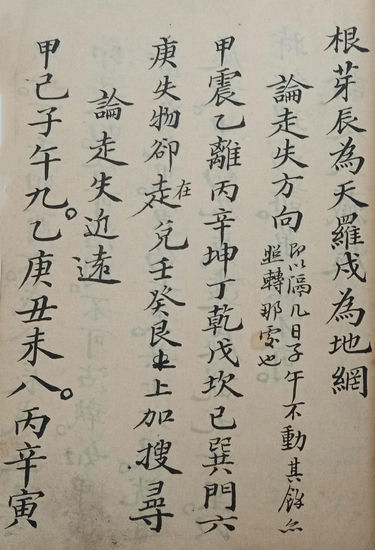 根芽辰為天羅戌為地網
論走失方向
以隔几日子午不動其餘
照轉那也
甲震乙離丙辛坤丁乾戊坎己巽門六
庚失物卻走在兌壬癸艮上加搜尋
論走失近遠
甲己子午九。乙庚丑未八。丙辛寅